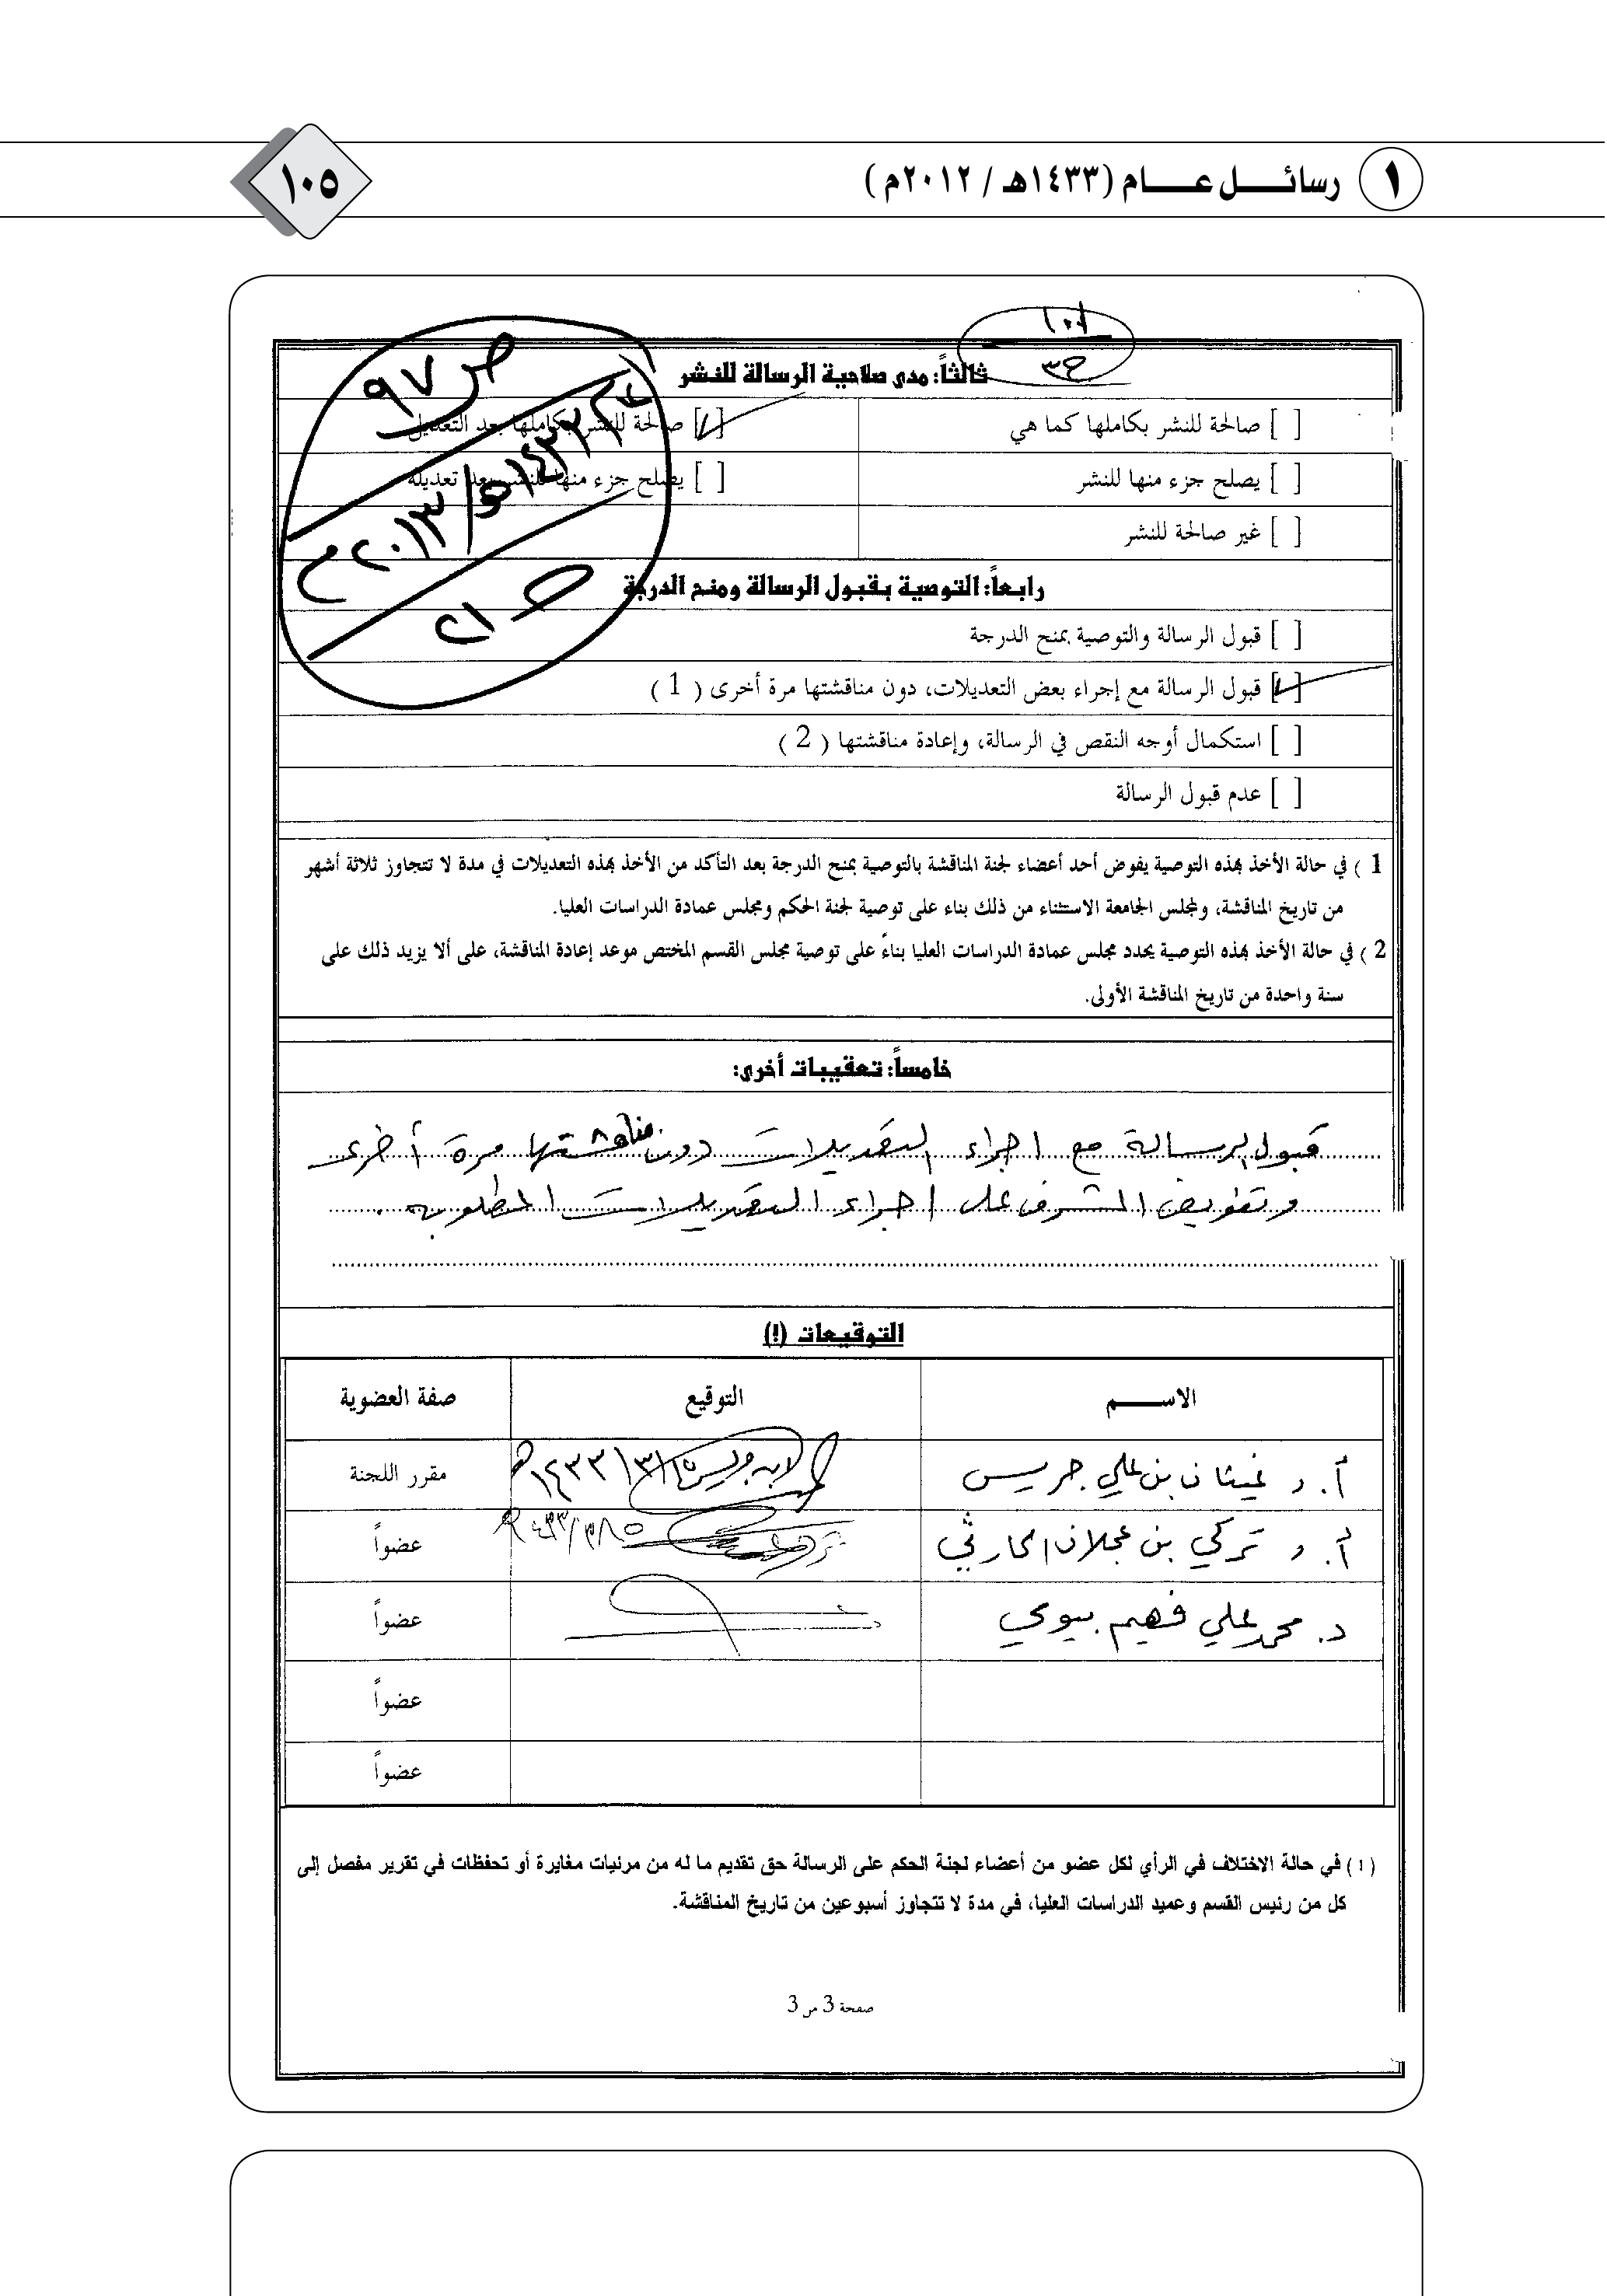 ١ رسائــــل عـــــام (١٤٣٣هـ / ٢٠١٢م)
١٠٥
ص ٩٧
١٤٣٣هـ / ٢٠١٣م
ص ٢١
ثالثاً: مدى صلاحية الرسالة للنشر
[ ] صالحة للنشر بكاملها كما هي
[/] صالحة للنشر بكاملها بعد التعديل
[ ] يصلح جزء منها للنشر
[ ] يصلح جزء منها للنشر بعد تعديله
[ ] غير صالحة للنشر
رابعاً: التوصية بقبول الرسالة ومنح الدرجة
[ ] قبول الرسالة والتوصية بمنح الدرجة
[/] قبول الرسالة مع إجراء بعض التعديلات، دون مناقشتها مرة أخرى ( 1 )
[ ] استكمال أوجه النقص في الرسالة، وإعادة مناقشتها ( 2 )
[ ] عدم قبول الرسالة
1 ) في حالة الأخذ بهذه التوصية يفوض أحد أعضاء لجنة المناقشة بالتوصية بمنح الدرجة بعد التأكد من الأخذ بهذه التعديلات في مدة لا تتجاوز ثلاثة أشهر
من تاريخ المناقشة، ولمجلس الجامعة الاستثناء من ذلك بناء على توصية لجنة الحكم ومجلس عمادة الدراسات العليا.
2 ) في حالة الأخذ بهذه التوصية يحدد مجلس عمادة الدراسات العليا بناءً على توصية مجلس القسم المختص موعد إعادة المناقشة، على ألا يزيد ذلك على
سنة واحدة من تاريخ المناقشة الأولى.
خامساً: تعقيبات أخرى:
قبول الرسالة مع اجراء التعديلات دون مناقشتها مرة أخرى
وتفويض المشرف على اجراء التعديلات المطلوبة.
التوقيعات (!)
الاســـــم التوقيع صفة العضوية
أ. د غيثان بن علي جريس ١٤٣٣/٣/١٥هـ مقرر اللجنة
أ. د تركي بن عجلان الحارثي عضواً
د. محمد علي فهيم بيومي عضواً
عضواً
عضواً
(١) في حالة الاختلاف في الرأي لكل عضو من أعضاء لجنة الحكم على الرسالة حق تقديم ما له من مرئيات مغايرة أو تحفظات في تقرير مفصل إلى
كل من رئيس القسم وعميد الدراسات العليا، في مدة لا تتجاوز أسبوعين من تاريخ المناقشة.
صفحة 3 من 3